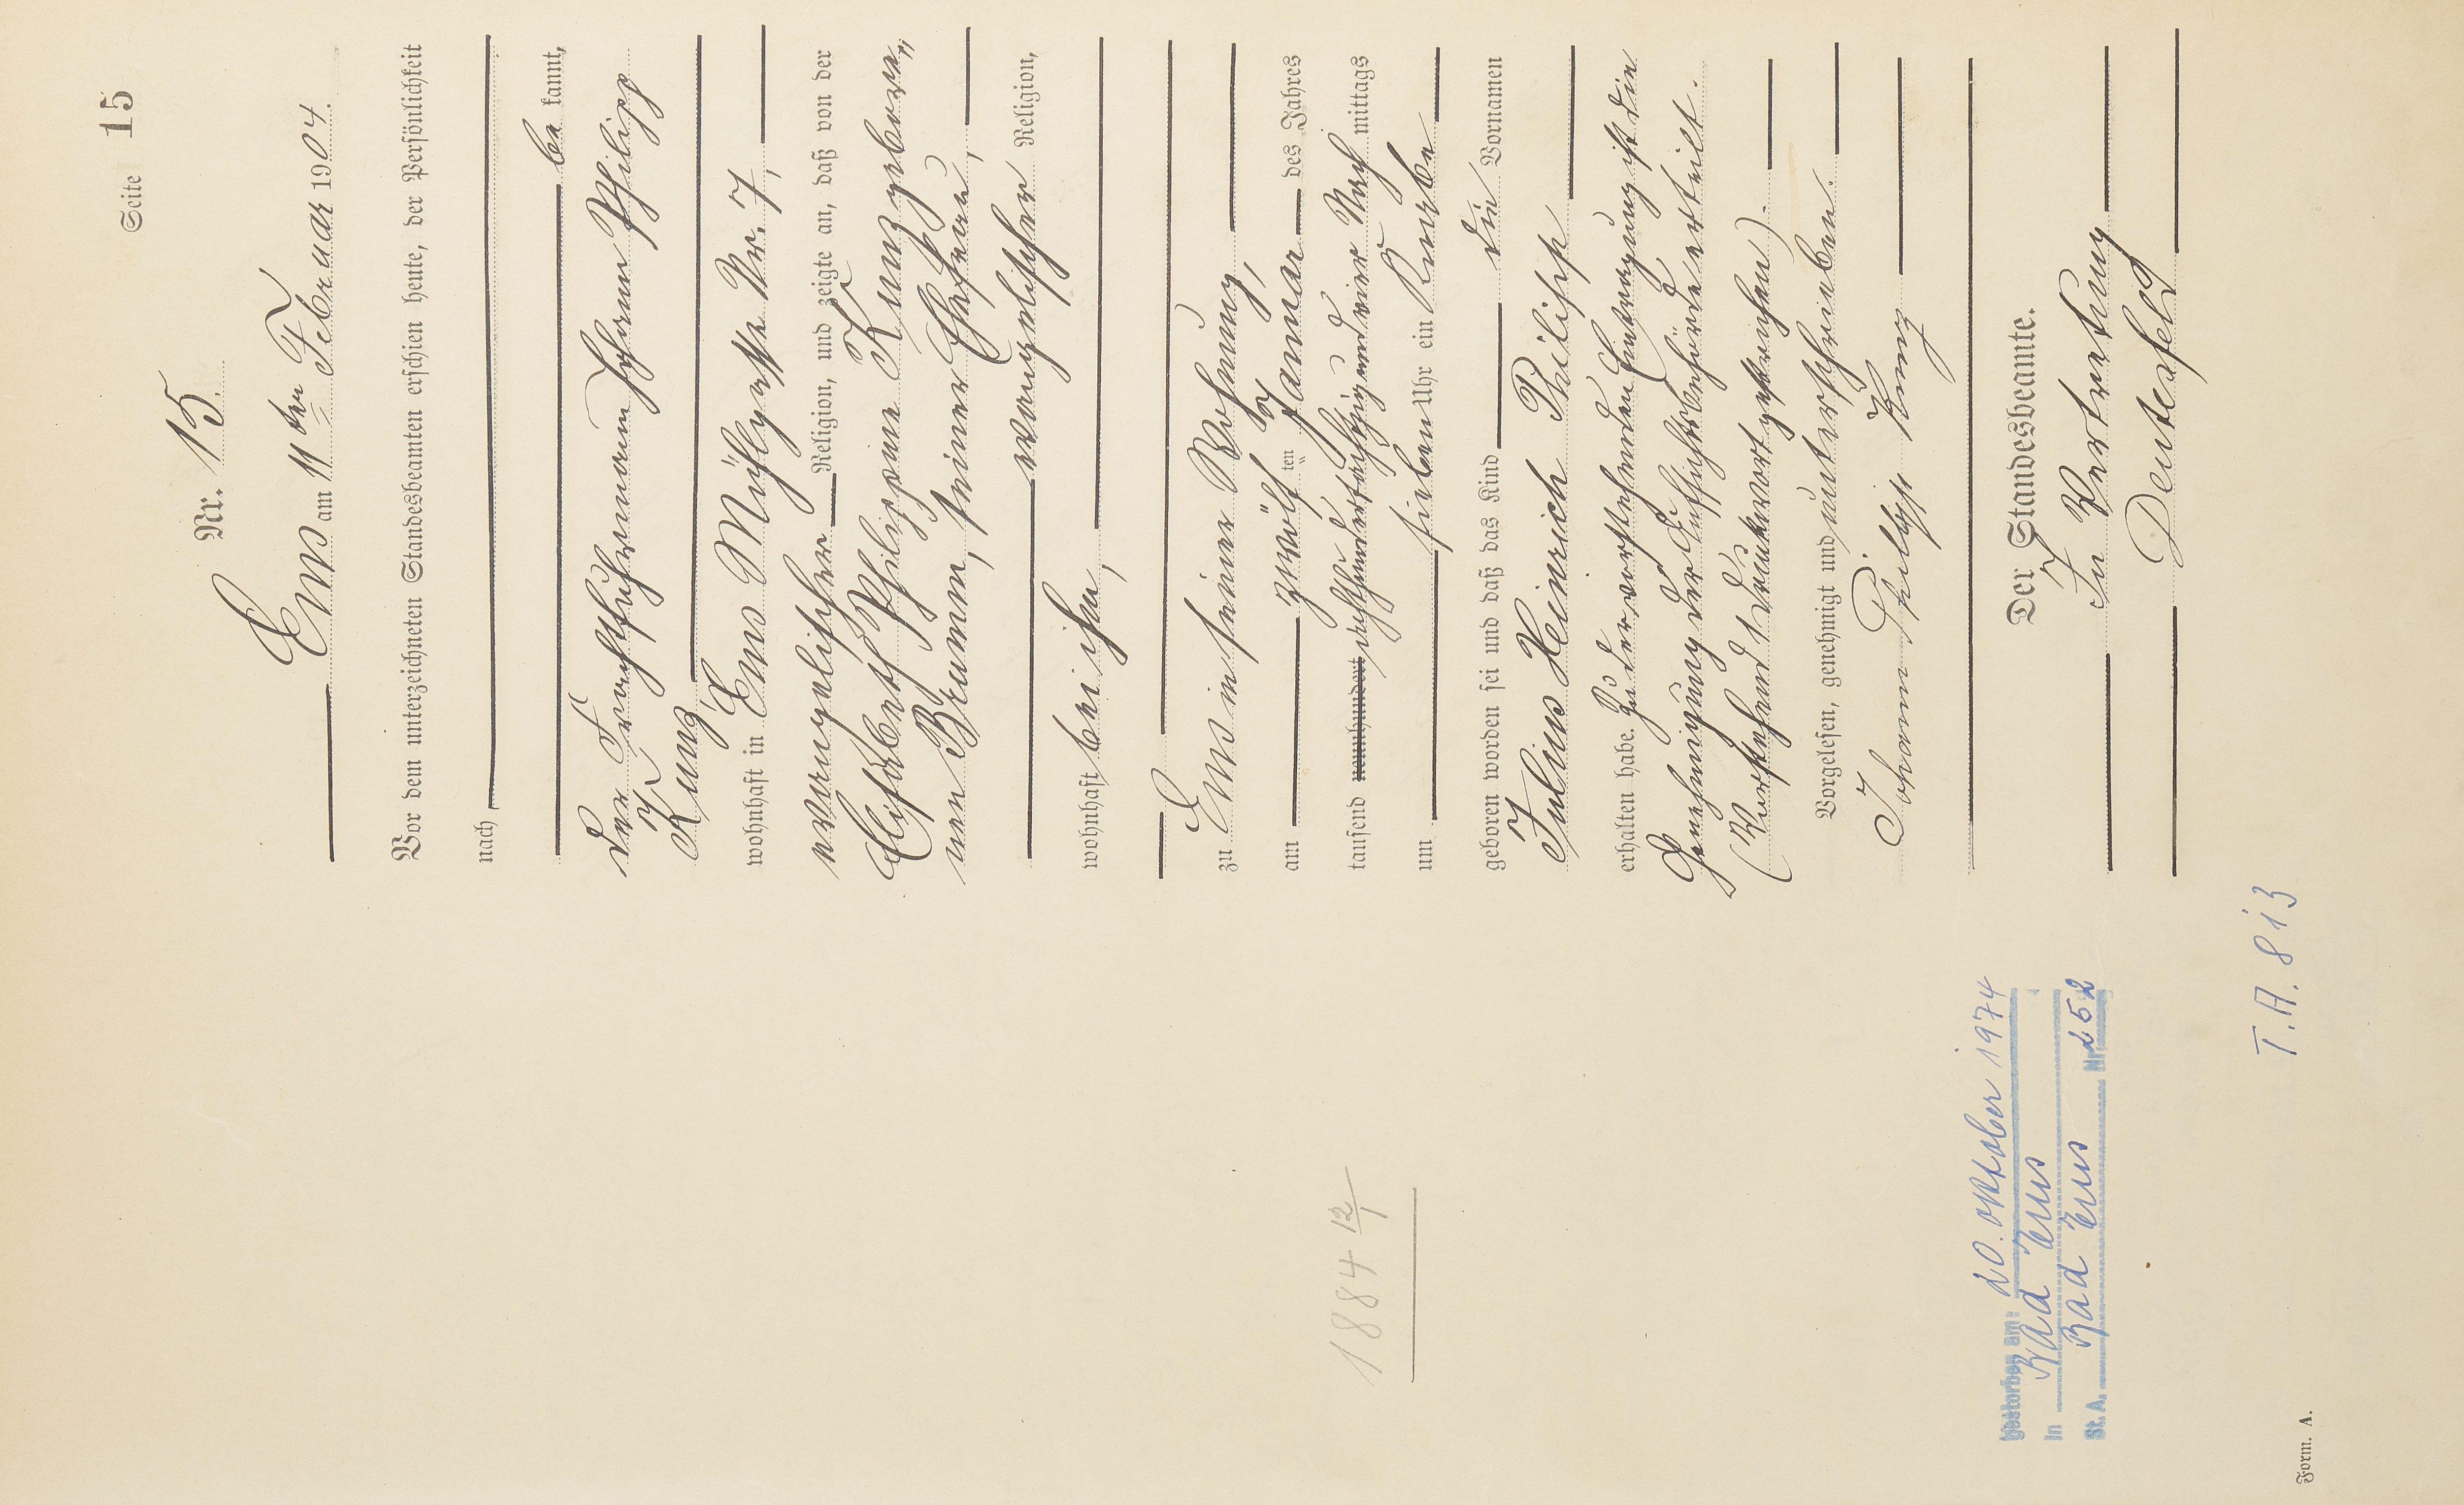 Seite 15
Nr. 15.
Ems am 11ten Februar 1904.
Vor dem unterzeichneten Standesbeamten erschien heute, der Persönlichkeit
nach
be kannt,
der Frachtfuhrmann Johann Philipp
Kunz,
wohnhaft in Ems Mühlgasse Nr. 7,
evangelischer Religion, und zeigte an, daß von der
Elisabeth Philippine Kunz gebore,,
nen Brumm, seiner Ehefrau,
evangelischer Religion,
wohnhaft bei ihm,
zu Ems in seiner Wohnung,
am zwölf ten Januar des Jahres
tausend neunhundert achthundertachtzigundvier Nach mittags
um sieben Uhr ein Knabe
geboren worden sei und daß das Kind die Vornamen
Julius Heinrich Philipp
erhalten habe. Zu der vorstehenden Eintragung ist die
Genehmigung der Aufsichtsbehörde erteilt.
(Vorstehend 1 Druckwort gestrichen).
Vorgelesen, genehmigt und unterschrieben.
Johann Philipp Kunz
Der Standesbeamte.
In Vertretung
Deutesfeld
1884 12/1
gestorben am: 20. Oktober 1974
in Bad Ems
St. A. Bad Ems Nr. 252
T.A. 813
Form. A.